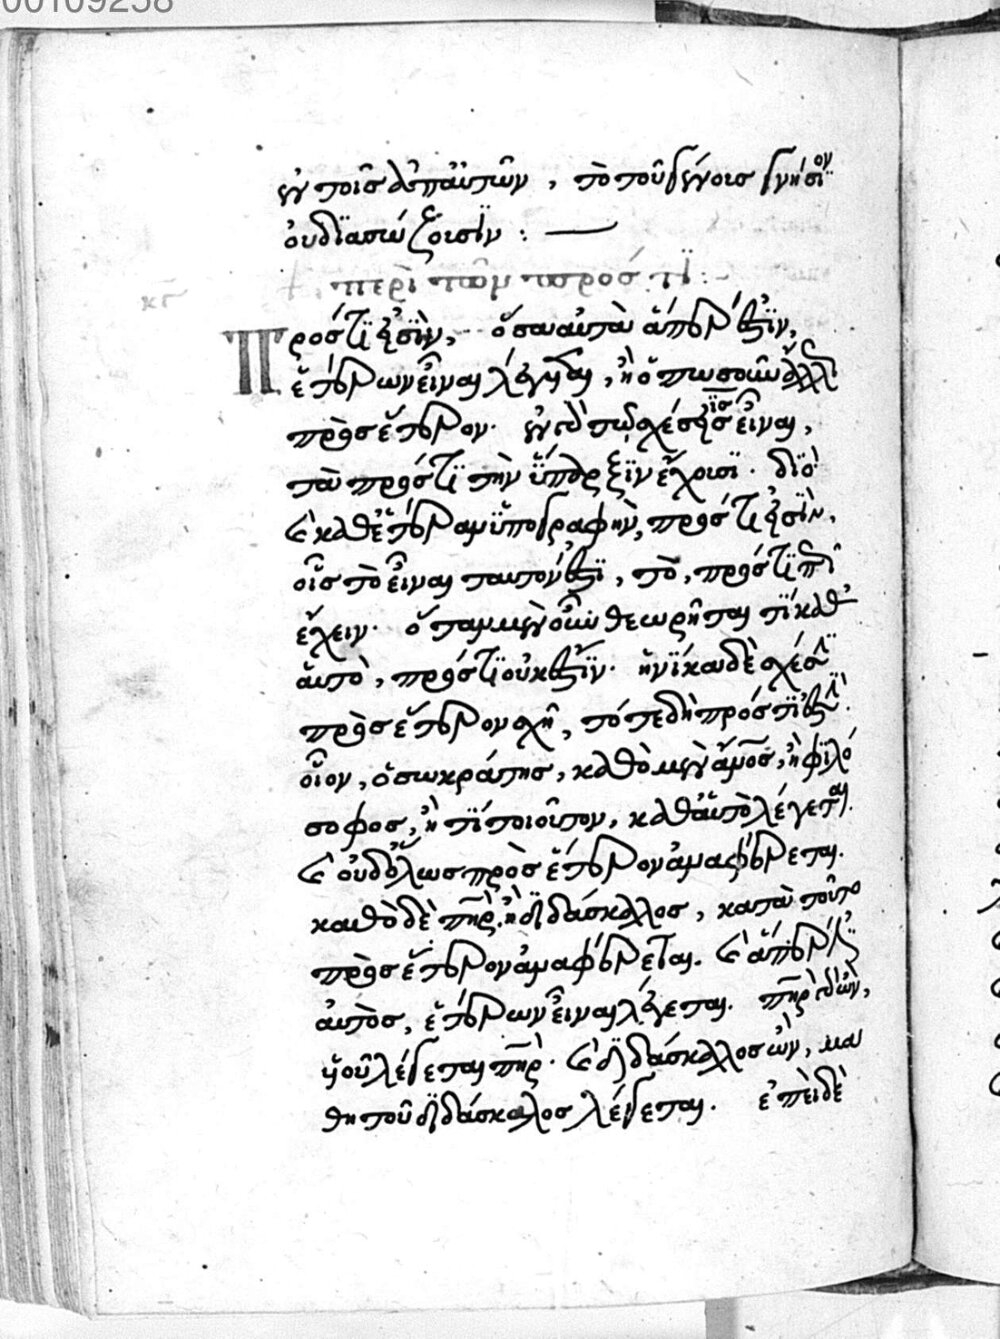 00109258
ἐν τοῖς ἀπ' αὐτῶν, τὸ τοῦ γένους γνήσιον
οὐ διασώζουσιν :—
περὶ τῶν πρός τι :
κγ
Πρός τι ἐστὶν, ὅσα αὐτὰ ἅπερ ἐστὶν,
ἑτέρων εἶναι λέγεται, ἢ ὁπωσοῦν ἄλλως
πρὸς ἕτερον. ἐν τῷ πως σχέσεις εἶναι,
τὰ πρός τι τὴν ὕπαρξιν ἔχουσι. διὸ
καὶ καθ' ἑτέραν ὑπογραφὴν, πρός τι ἐστὶν,
οἷς τὸ εἶναι ταυτόν ἐστι, τὸ, πρός τί πως
ἔχειν. ὅταν μὲν οὖν θεωρῆται τὶ καθ'
αὑτὸ, πρός τι οὐκ ἔστιν. ἡνίκα δὲ σχέσιν
πρὸς ἕτερον σχῇ, τότε δὴ πρός τι ἐστὶν.
οἷον, ὁ σωκράτης, καθὸ μὲν ἄνος, ἢ φιλό
σοφος, ἤ τι τοιοῦτον, καθ' αὑτὸ λέγεται.
καὶ οὐδόλως πρὸς ἕτερον ἀναφέρεται.
καθὸ δὲ πηρ, ἢ διδάσκαλος, κατὰ τοῦτο
πρὸς ἕτερον ἀναφέρεται. καὶ ἅπερ ἐστὶ
αὐτὸς, ἑτέρων εἶναι λέγεται. πηρ ὢν,
υοῦ λέγεται πηρ. καὶ διδάσκαλος ὢν, μα
θητοῦ διδάσκαλος λέγεται. ἐπειδὲ